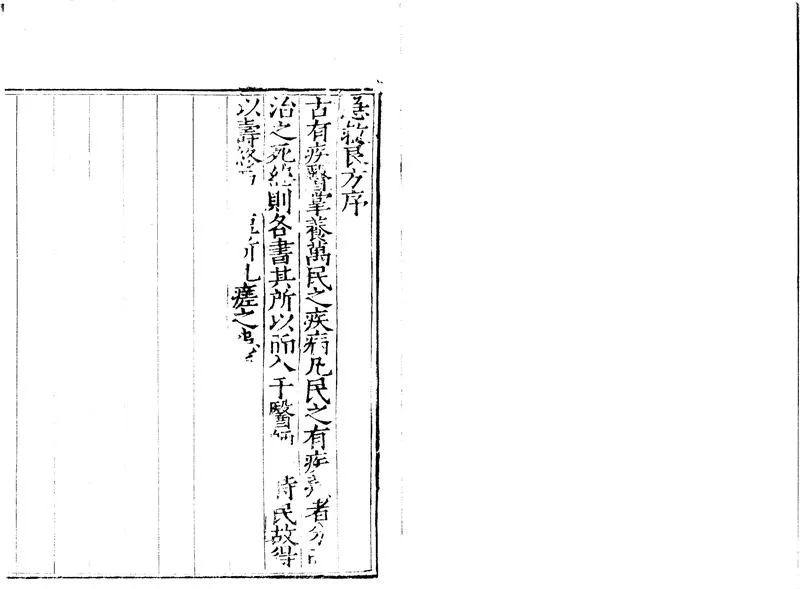 急救良方序
古有疾醫掌養萬民之疾病凡民之有疾 者分
治之死終則各書其所以而入于醫師 時民故得
以壽終 所 札瘥之